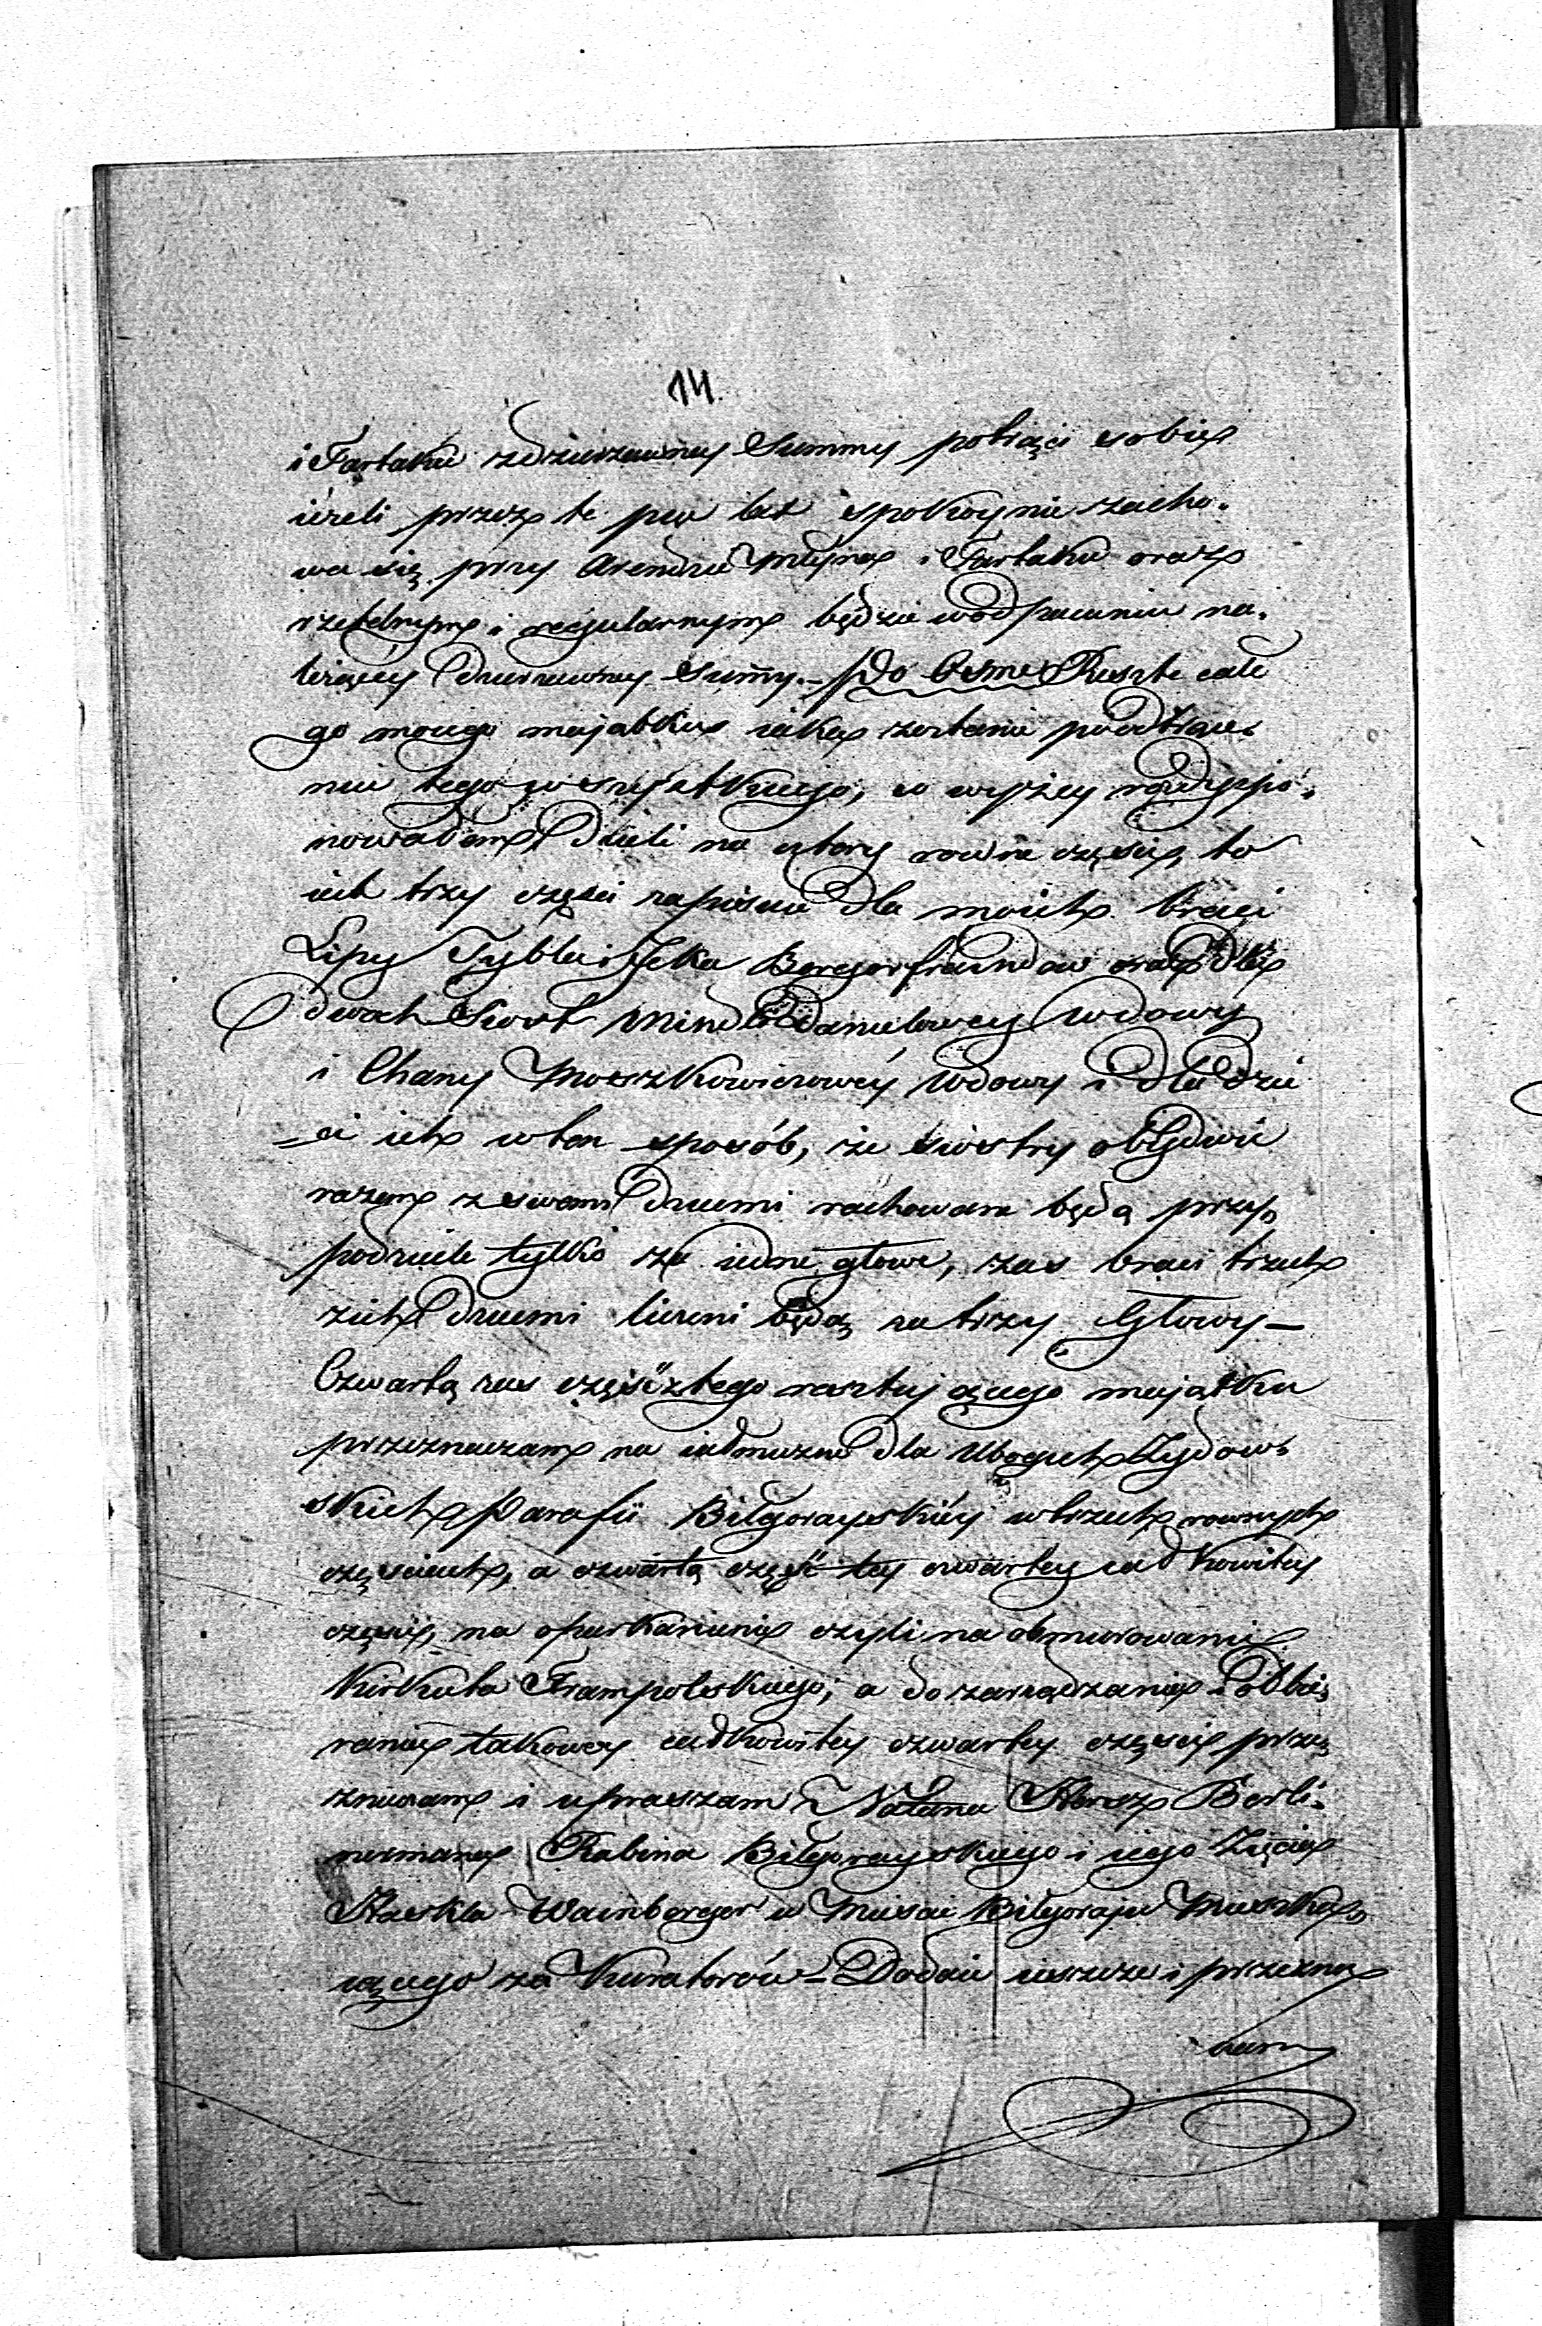 14.
i Tartaku zdzierzawney Summy potrącić sobie
ieżeli przez te lat spokoynie zacho-
wa się przy Arendzie Młyna i Tartaku oraz
rzetelnym i regularnym będzie w odpłacaniu na-
leżącey dzierzawney Summy. – Do Osme Reszte całe
go mojego majątku iaka zostanie po odtrące-
niu tego wszystkiego, co wyżey rozdyspo-
nowałem dzieli na cztery rowne części, to
iest trzy części zapisuie dla moich braci
Lipy Tybla i Icka Bergierfraindow oraz dla
dwoch Siost Mindli Danielowey Wdowy
i Chany Moszkowiczowéy Wdowy i dla dzie
-ci ich w ten sposób, że siostry obydwie
razem z swemi dziećmi rachowane będą przy
podziele tylko za iedne głowe, zas braci trzech
z ich dziećmi liczeni będą za trzy Głowy –
Czwartą zas część z tego resztującego majątku
przeznaczam na iałmużne dla Ubogich Żydow-
skich Parafii Biłgorayskiéy w trzech rownych
częściach, a czwartą część tey czwartey całkowitey
części, na oparkanienie czyli na obmurowanie
Kirkuta Frampolskiego; a do zarządzania i odbie-
rania takowey całkowitey czwartey części prze-
znaczam i upraszam Natana Hersz Berli-
nermana Rabina Biłgorayskiego i iego Zięcia
Haskla Wainberger w Mieście Biłgoraju Mieszka-
iącego za Kuratorów – Dodaie ieszcze i przezna
czam